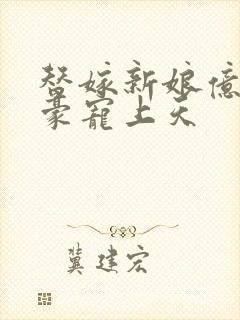 替嫁新娘億
豪寵上天
冀建宏